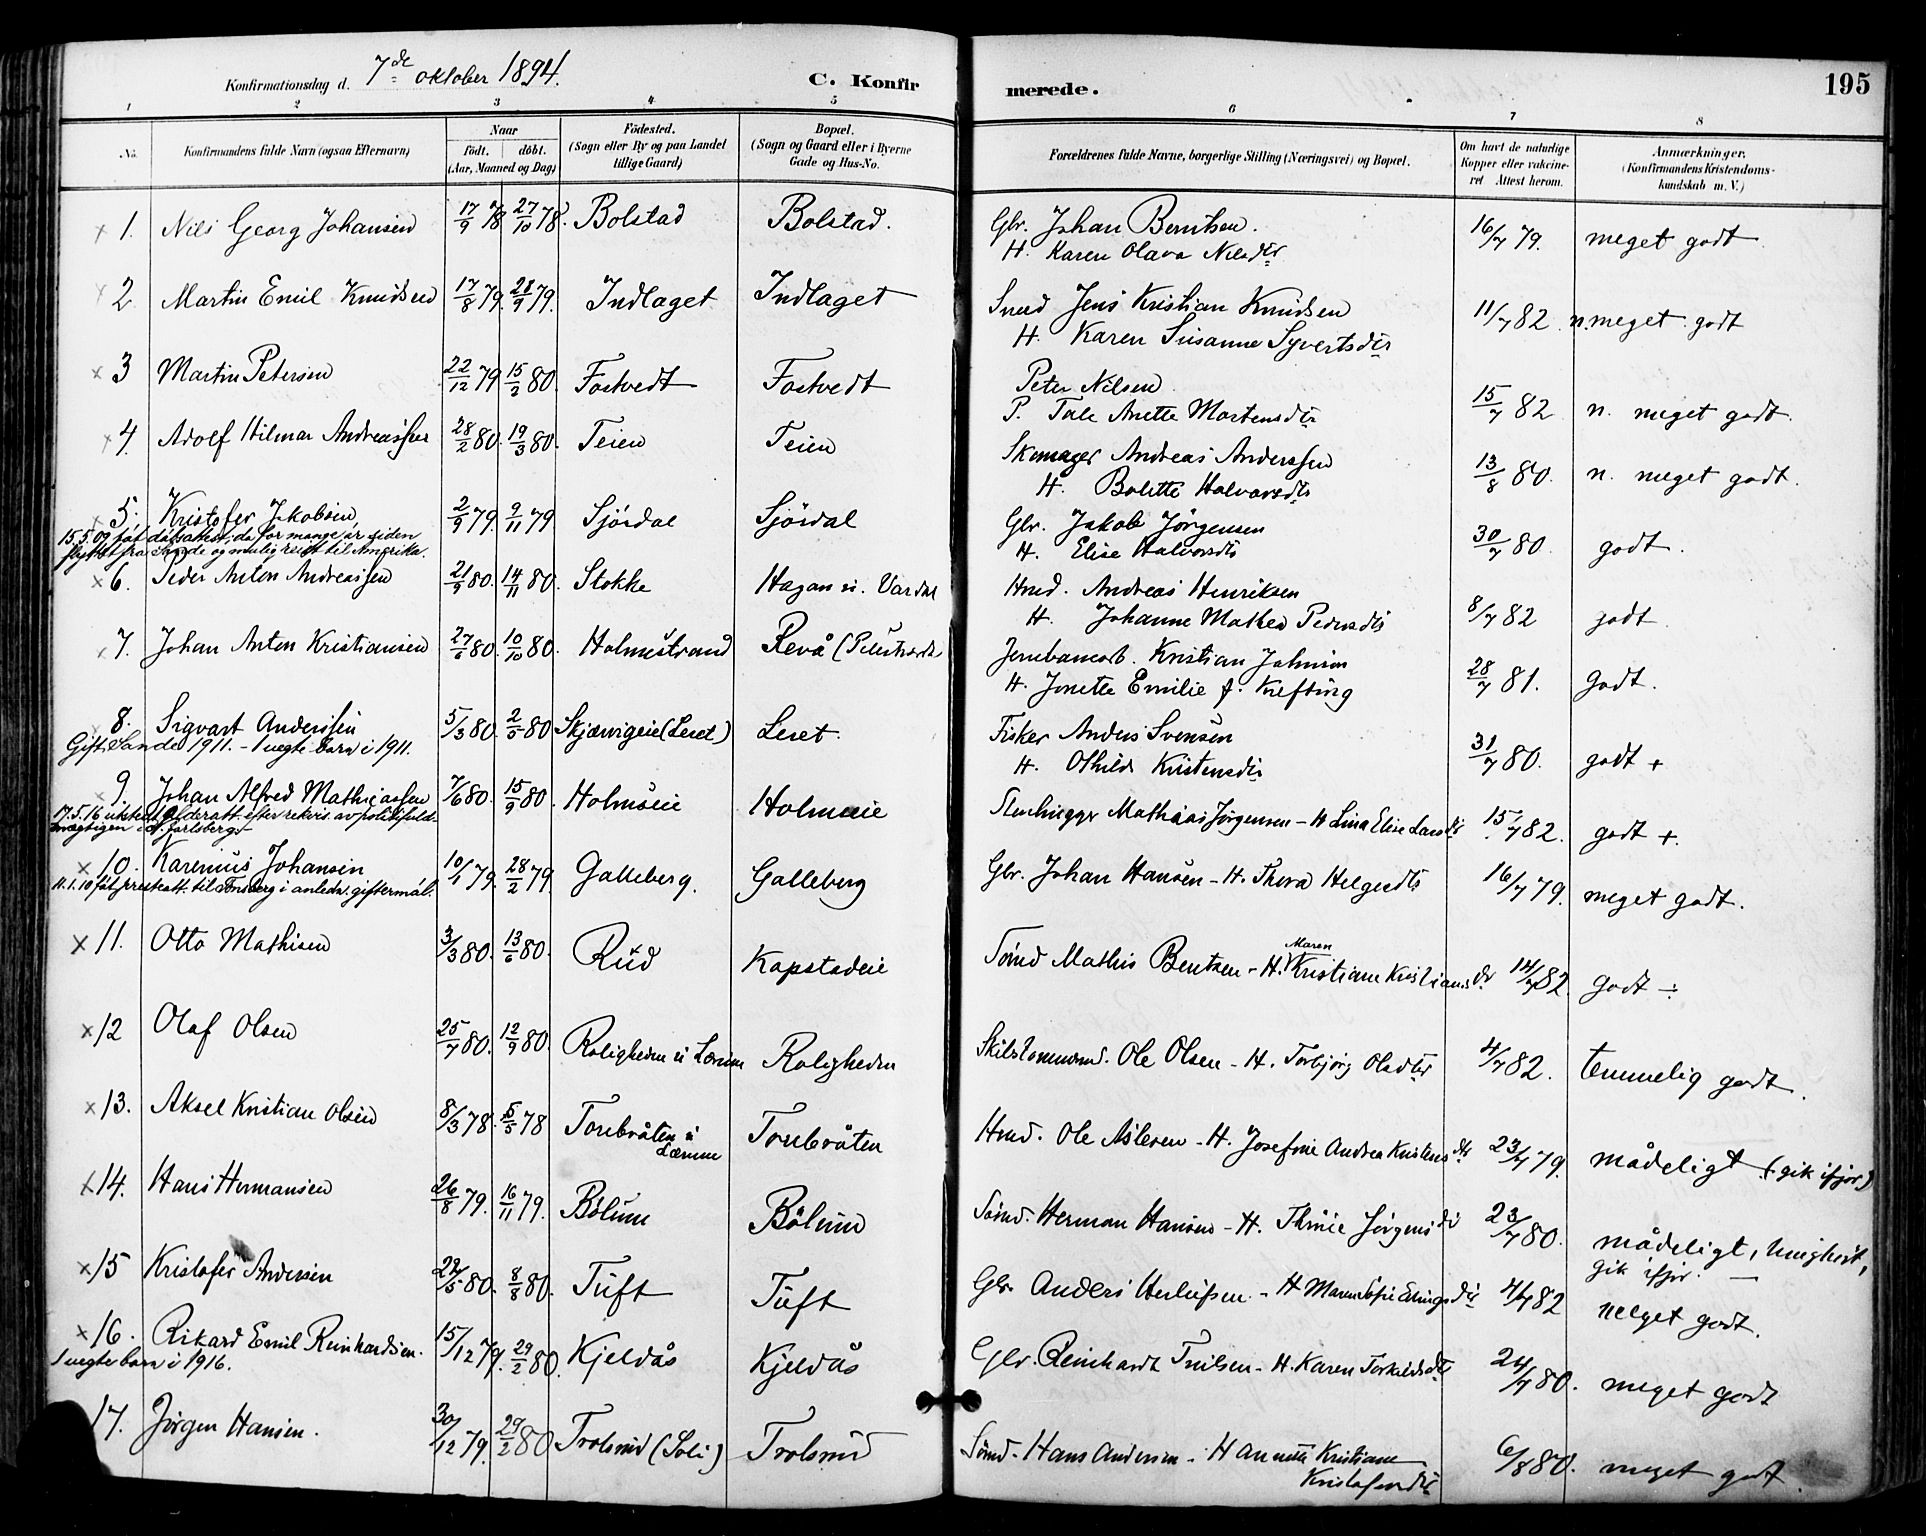 Konfirmationsdag d. 7de oktober 1894. C. Konfirmerede. 195
1 2 3 4 5 6 7 8
No. Konfirmandens fulde Navn (ogsaa Efternavn) Naar födt. döbt. (Aar, Maaned og Dag) Födested. (Sogn eller By og paa Landet tillige Gaard) Bopæl. (Sogn og Gaard eller i Byerne Gade og Hus-No. Forældrenes fulde Navne, borgerlige Stilling (Næringsvei) og Bopæl. Om havt de naturlige Kopper eller vakcineret Attest herom. Anmærkninger. (Konfirmandens Kristendomskundskab m. V.)
x 1. Nils Georg Johansen 17/9 78 27/10 78. Bolstad Bolstad. Gbr. Johan Berntsen. 16/7 79. meget godt
H. Karen Olava Nilsdtr
x 2 Martin Emil Knudsen 17/8 79. 28/9 79. Indlaget Indlaget Smed Jens Kristian Knudsen 11/7 82 n. meget godt
H. Karen Susanne Syvertsdtr
x 3 Martin Petersen 22/12 79 15/2 80. Fostvedt Fostvedt Peter Nilsen 15/7 82 n. meget godt.
P. Tale Anette Mortensdtr
x 4. Adolf Hilmar Andreassen 28/2 80. 19/3 80. Teien Teien Skomager Andreas Anderssen 13/8 80. n. meget godt.
H. Bolette Halvorsdtr
x 5. Kristofer Jakobsen 2/9 79. 9/11 79 Sjördal Sjördal Gbr. Jakob Jörgensen 30/7 80. godt.
H. Elise Halvorsdtr
15.5.09 fåt dåbsattest, da for mange år siden
flyttet fra Sande og mulig reist til Amerika.
x 6. Peder Anton Andreassen 21/9 80. 14/11 80. Stokke Hagan u. Vardal Hmd. Andreas Henriksen 8/7 82 godt
H. Johanne Mathea Pedersdtr
x 7. Johan Anton Kristiansen 27/6 80. 10/10 80. Holmestrand Revå Jernbanearb. Kristian Johnsen 28/7 81. godt.
H. Jonette Emilie f. Krefting
8. Sigvart Anderssen 5/3 80. 2/5 80 Skjærvigeie (Leret) Leret. Fisker Anders Svensen 31/7 80. godt +
H. Othilde Kristensdtr
Gift Sande 1911. - 1 uegte barn i 1911.
x 9. Johan Alfred Mathiassen 7/6 80. 15/9 80. Holmseie Holmseie Stenhugger Mathias Jörgensen - H Lina Elise Larsdtr 15/7 82. godt +.
17.5.16 utstedt alderatt. efter rekvis. av politifuld-
mægtigen i N. Jarlsberg.
x 10. Karenius Johansen 10/1 79. 28/2 79. Galleberg. Galleberg Gbr. Johan Hansen - H. Thora Helgesdtr 16/7 79. meget godt.
11.1.10 fåt presteatt. til Tønsberg i anledn. giftermål.
x 11. Otto Mathisen 3/3 80. 13/6 80. Rud Kapstadeie Tömd Mathis Bentsen - H. Maren Kristiane Kristiansdtr 14/7 82. godt ÷
x 12 Olaf Olsen 25/7 80. 12/9 80. Roligheden u Lærum Roligheden Ole Olsen - H. Torbjörg Olsdtr 4/7 82. temmelig godt.
x 13. Aksel Kristian Olsen 8/3 78. 5/5 78 Tornbråten u Lærum Tornbråten Hmd. Ole Aslesen - H. Josefine Andrea Kristensdtr 23/7 79. mådeligt (gik ifjor)
x 14. Hans Hermansen 26/8 79. 16/11 79. Bölum Bölum Sömd. Herman Hansen - H. Thrine Jörgensdtr 23/7 80. mådeligt,
gik ifjor. —
x 15 Kristofer Andersen 22/5 80. 8/8 80. Tuft Tuft Gbr Anders Herlufsen - H Maren Sofie Ellingsdtr 4/7 82 meget godt.
x 16. Rikard Emil Reinhardsen. 15/12 79. 29/2 80. Kjeldås Kjeldås Gbr. Reinhardt Truelsen - H. Karen Torkildsdtr 24/7 80. meget godt
1 uegte barn i 1916.
17. Jörgen Hansen. 30/12 79. 29/2 80 Trolsrud (Soli) Trolsrud Sömd. Hans Andersen - H Annette Kristiane 6/8 80. meget godt.
Kristofersdtr